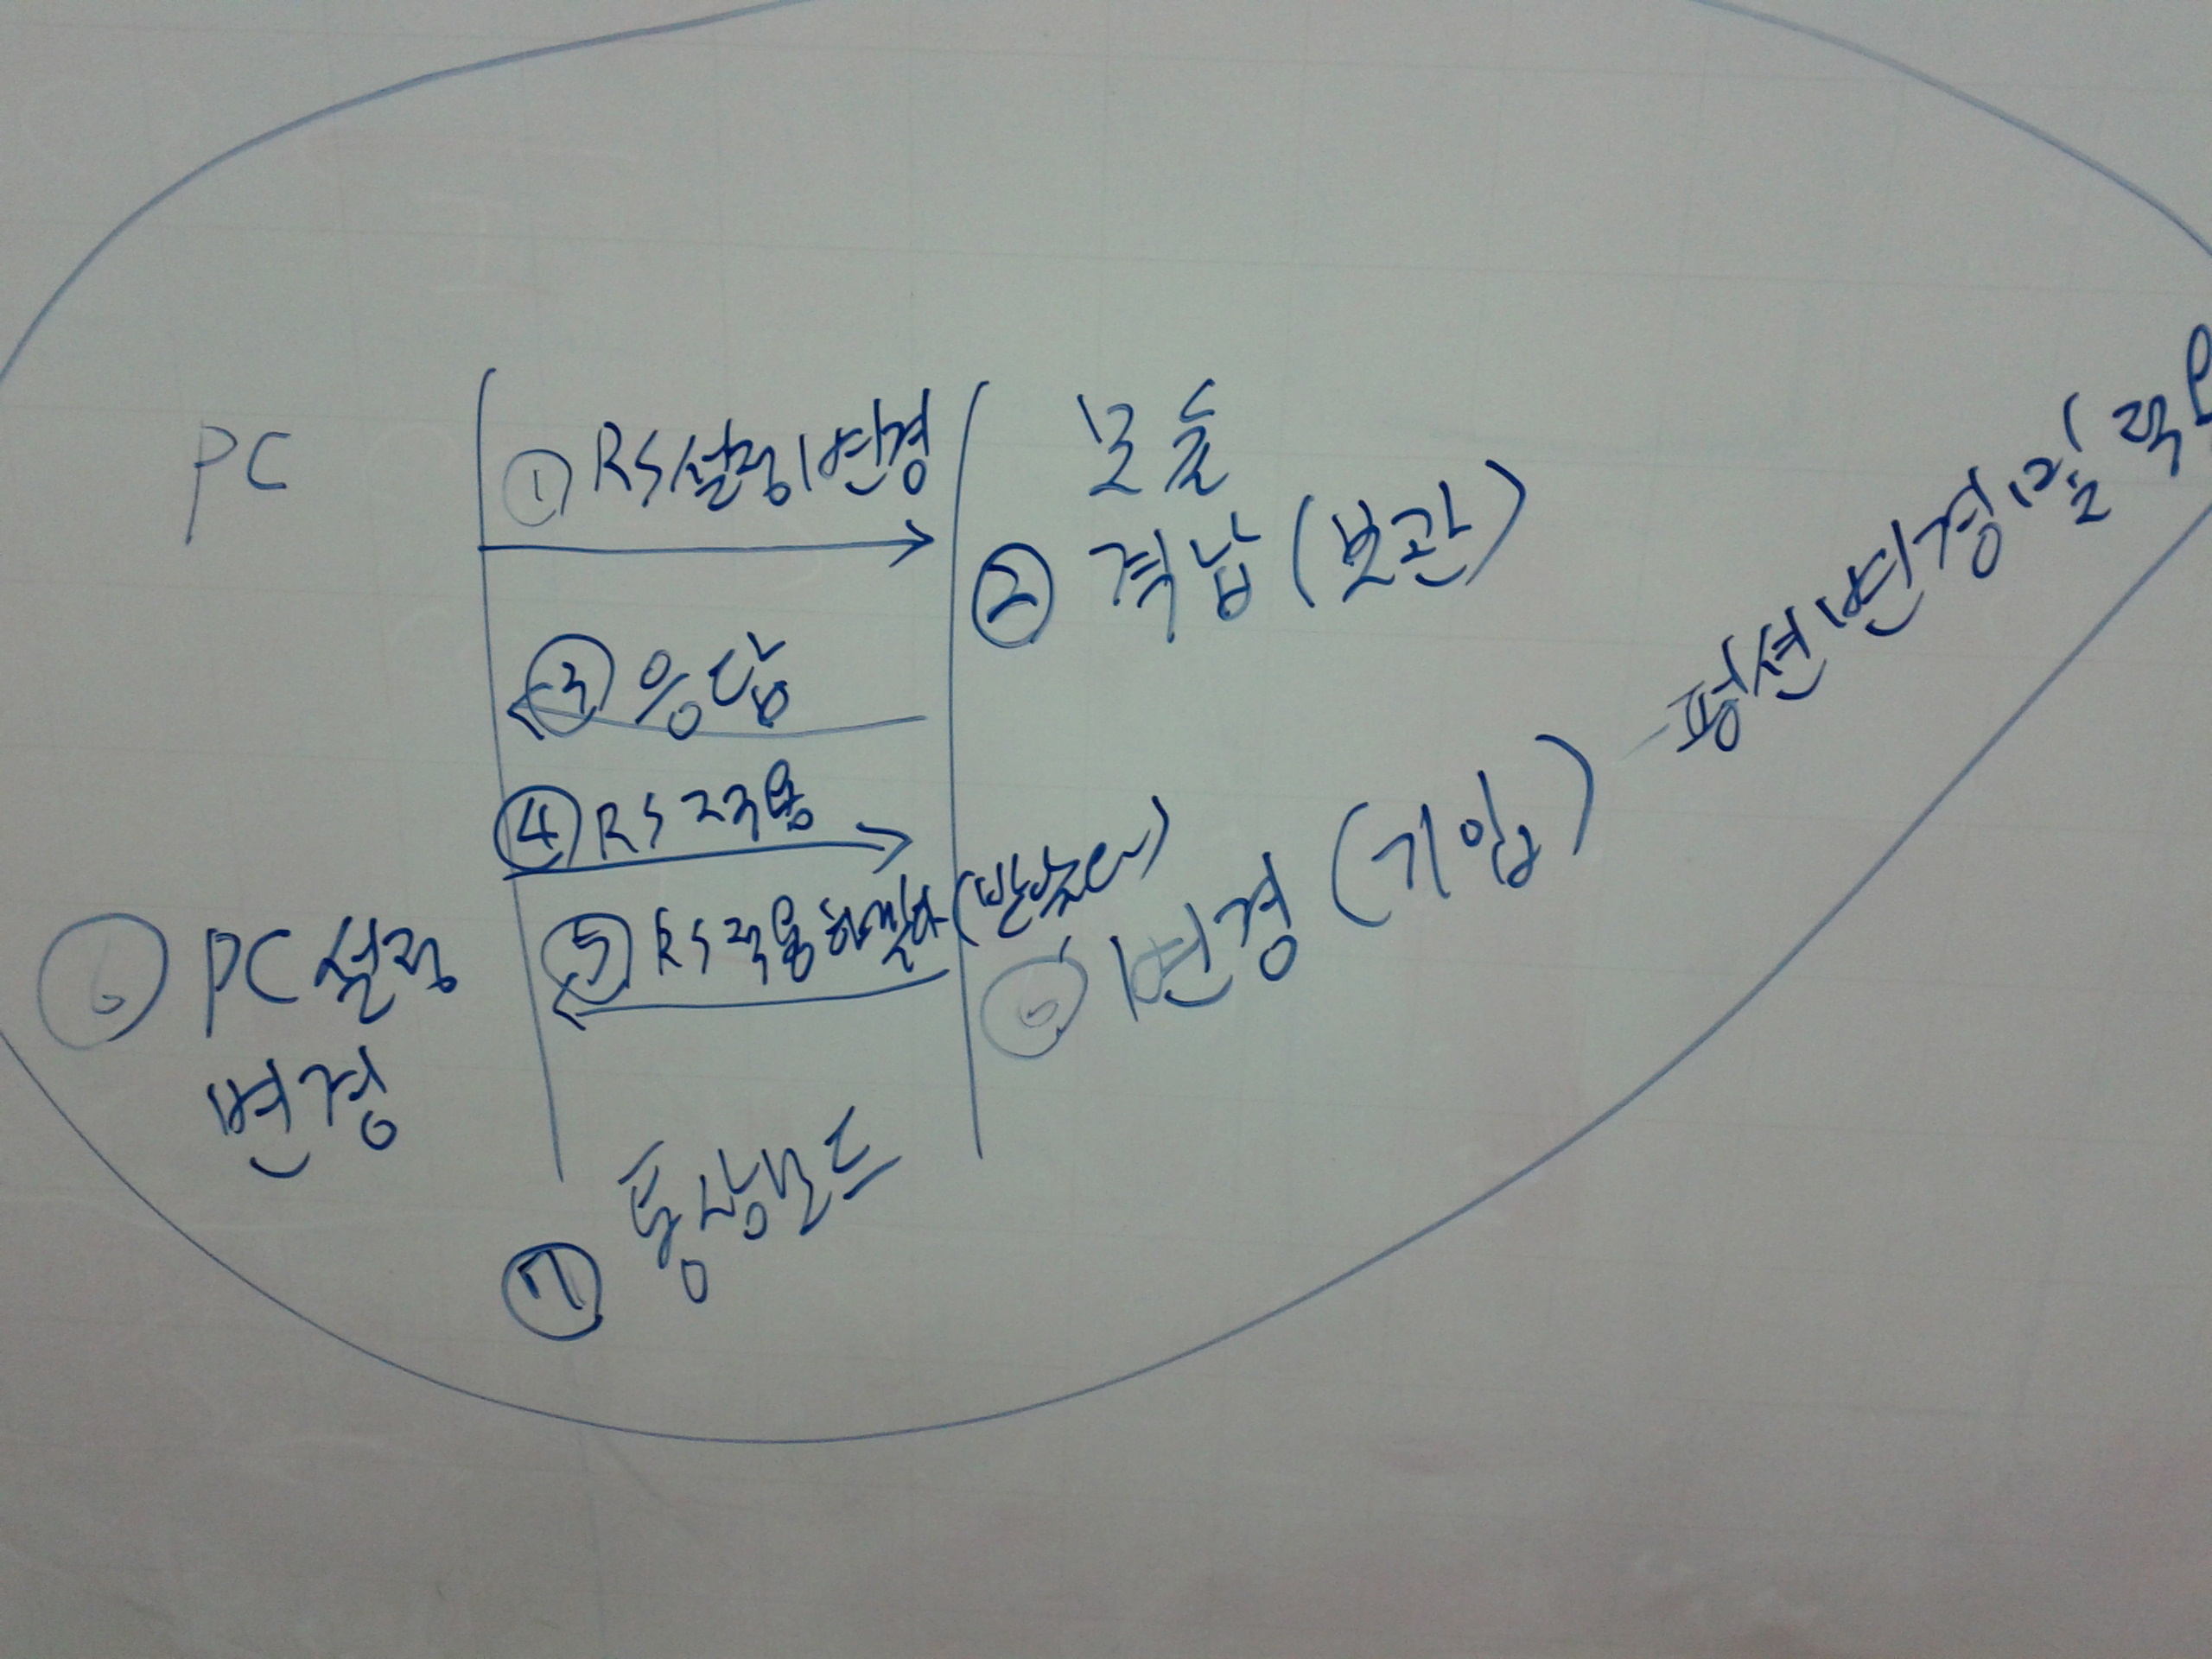 PC
① RS설정변경
모듈
② 격납 (보관)
③ 응답
④ RS적용
⑤ RS적용
⑥ PC설정
변경
⑥ 변경 (기입)
변경
⑦ 통상모드